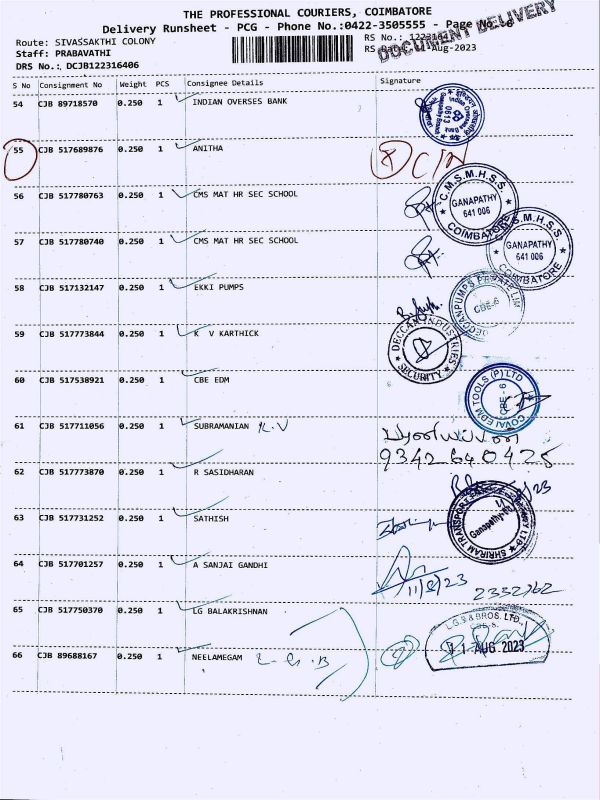 THE PROFESSIONAL COURIERS, COIMBATORE
Delivery Runsheet - PCG - Phone No.:0422-3505555 - Page No.
DOCUMENT DELIVERY
Route: SIVASAKTHI COLONY
Staff: PRABAVATHI
DRS No.: DCJB122316406
RS No.:
11-Aug-2023
S No Consignment No Weight PCS Consignee Details Signature
54 CJB 89718570 0.250 1 INDIAN OVERSES BANK
0613
55 CJB 517689876 0.250 1 ANITHA
56 CJB 517780763 0.250 1 CMS MAT HR SEC SCHOOL
C.M.S.M.H.S.S. GANAPATHY 641 006 COIMBATORE
57 CJB 517780740 0.250 1 CMS MAT HR SEC SCHOOL
GANAPATHY 641 006 COIMBATORE
58 CJB 517132147 0.250 1 EKKI PUMPS
DECCANPUMPS PRIVATE LIM CBE-6
59 CJB 517773844 0.250 1 K V KARTHICK
DECCAN INDUSTRIES SECURITY
60 CJB 517538921 0.250 1 CBE EDM
COVAI EDM TOOLS (P) LTD CBE - 6
61 CJB 517711056 0.250 1 SUBRAMANIAN K.V
9342640425
62 CJB 517773870 0.250 1 R SASIDHARAN
63 CJB 517731252 0.250 1 SATHISH
SHRIRAM TRANSPORT Ganapathy LTD
64 CJB 517701257 0.250 1 A SANJAI GANDHI
11/8/23 2332762
65 CJB 517750370 0.250 1 LG BALAKRISHNAN
L.G.B & BROS. LTD.,
66 CJB 89688167 0.250 1 NEELAMEGAM L.G.B
11 AUG 2023